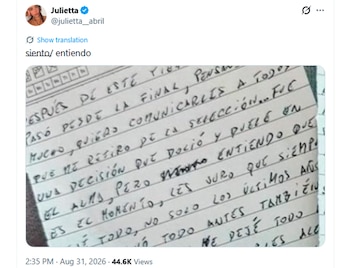 Julietta
@julietta__abril
Show translation
siento/ entiendo
ESPUÉS DE ESTE TIE
PASÓ DESDE LA FINAL, PENSAN
MUCHO, QUIERO COMUNICARLES A TODOS
QUE ME RETIRO DE LA SELECCIÓN. FUE
UNA DECISIÓN QUE DOLIÓ Y DUELE EN
EL ALMA, PERO ENTIENDO QUE
ES EL MOMENTO, LES JURO QUE SIEMP
TODO, NO SOLO LOS ÚLTIMOS AÑOS
TODO ANTES TAMBIÉN
ME DEJÉ TODO
2:35 PM · Aug 31, 2026 · 44.6K Views